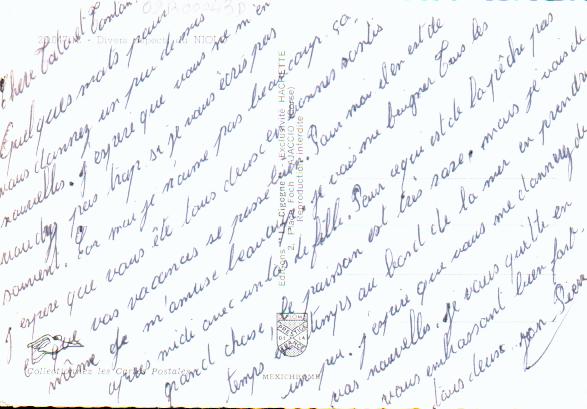 Chère Tata et Tonton
Quelques mots pour
vous donnez un peu de mes
nouvelles. J'espere que vous ne m'en
voudrez pas trop si je vous écris pas
souvent. Car moi je n'aime pas beaucoup ça.
J'espere que vous ête tous deux en bonnes santés
et que vos vacances se passe bien. Pour moi il en est de
même je m'amuse beaucoup, je vais me baigner tous les
après midi avec un tas de fille. Pour ce qui est de la pêche pas
grand chose, le poisson est très rare, mais je vais de
temps en temps au bord de la mer en prendre
un peu. J'espere que vous me donnerez de
vos nouvelles. Je vous quitte en
vous embrassant bien fort.
tous deux. Jean-Pierre
Divers aspects du NIOLO
Editions "La Cigogne" - Exclusivité HACHETTE
2, Place Foch - AJACCIO (Corse)
Reproduction interdite
Collectionnez les Cartes Postales
MEXICHROME